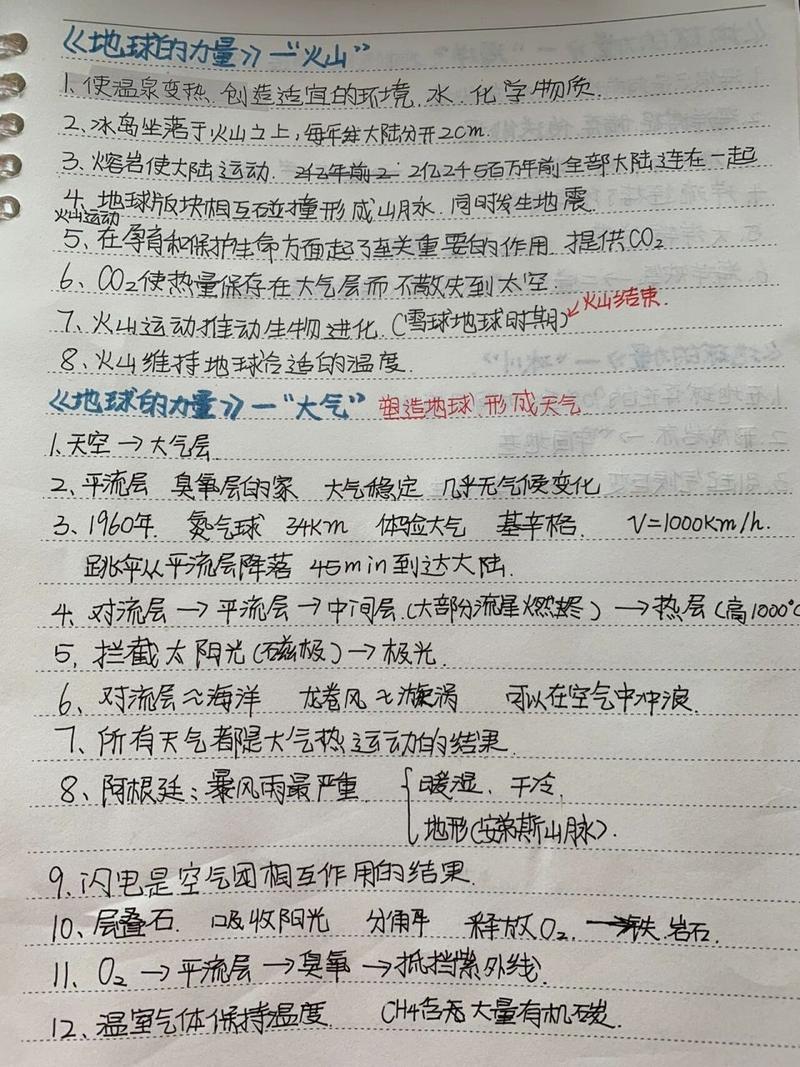 《地球的力量》—"火山"
1、使温泉变热 创造适宜的环境、水、化学物质.
2、冰岛坐落于火山之上,每年大陆分开2cm.
3、熔岩使大陆运动. 2亿年前2 2亿2千5百万年前全部大陆连在一起
4、地球版块相互碰撞形成山脉 同时发生地震.
火山运动
5、在孕育和保护生命方面起了至关重要的作用 提供CO2
6、CO2使热量保存在大气层而不散失到太空.
7、火山运动推动生物进化.(雪球地球时期)←火山结束.
8、火山维持地球合适的温度.
《地球的力量》—"大气" 塑造地球 形成天气
1、天空→大气层.
2、平流层 臭氧层的家 大气稳定 几乎无气候变化
3、1960年. 氦气球 34Km 体验大气 基辛格. V=1000Km/h.
跳伞从平流层降落 45min到达大陆.
4、对流层→平流层→中间层(大部分流星燃烧)→热层(高1000°C
5、拦截太阳光(磁极)→极光.
6、对流层≈海洋 龙卷风≈漩涡 可以在空气中冲浪.
7、所有天气都是大气热运动的结果.
8、阿根廷:暴风雨最严重 { 暖湿、干冷.
地形(安第斯山脉).
9、闪电是空气团相互作用的结果.
10、层叠石. 吸收阳光 分解 释放O2. →铁 岩石.
11、O2→平流层→臭氧→抵挡紫外线.
12、温室气体保持温度. CH4含大量有机碳.